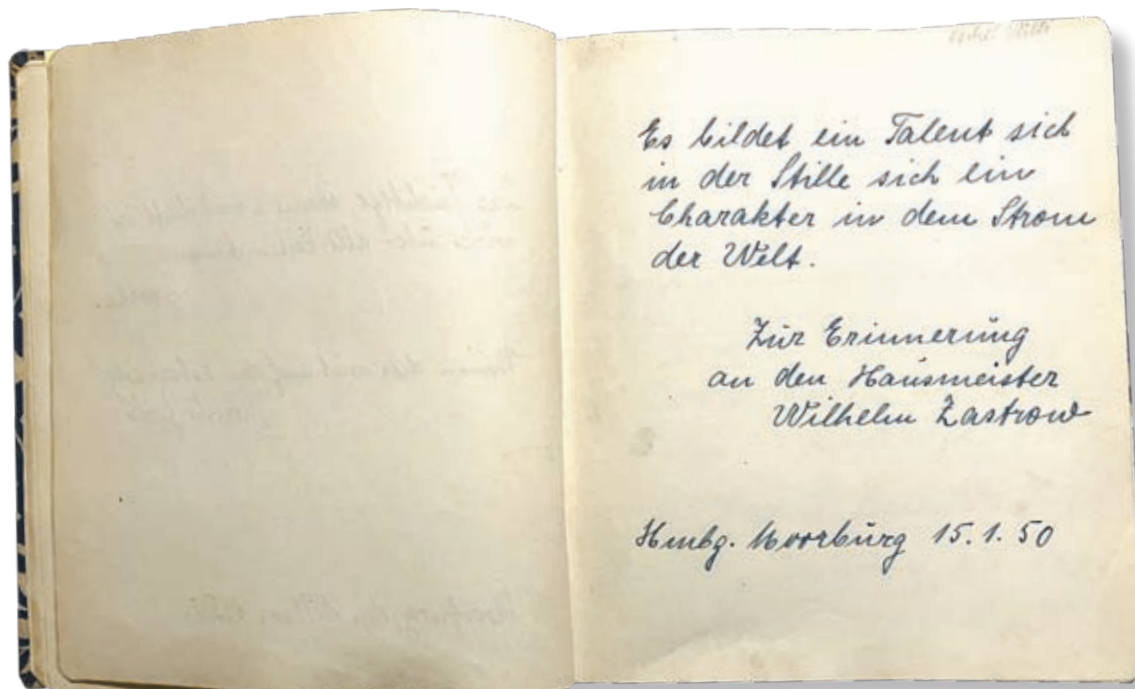 Es bildet ein Talent sich
in der Stille sich ein
Charakter in dem Strom
der Welt.
Zur Erinnerung
an den Hausmeister
Wilhelm Zastrow
Hmbg. Moorburg 15.1.50